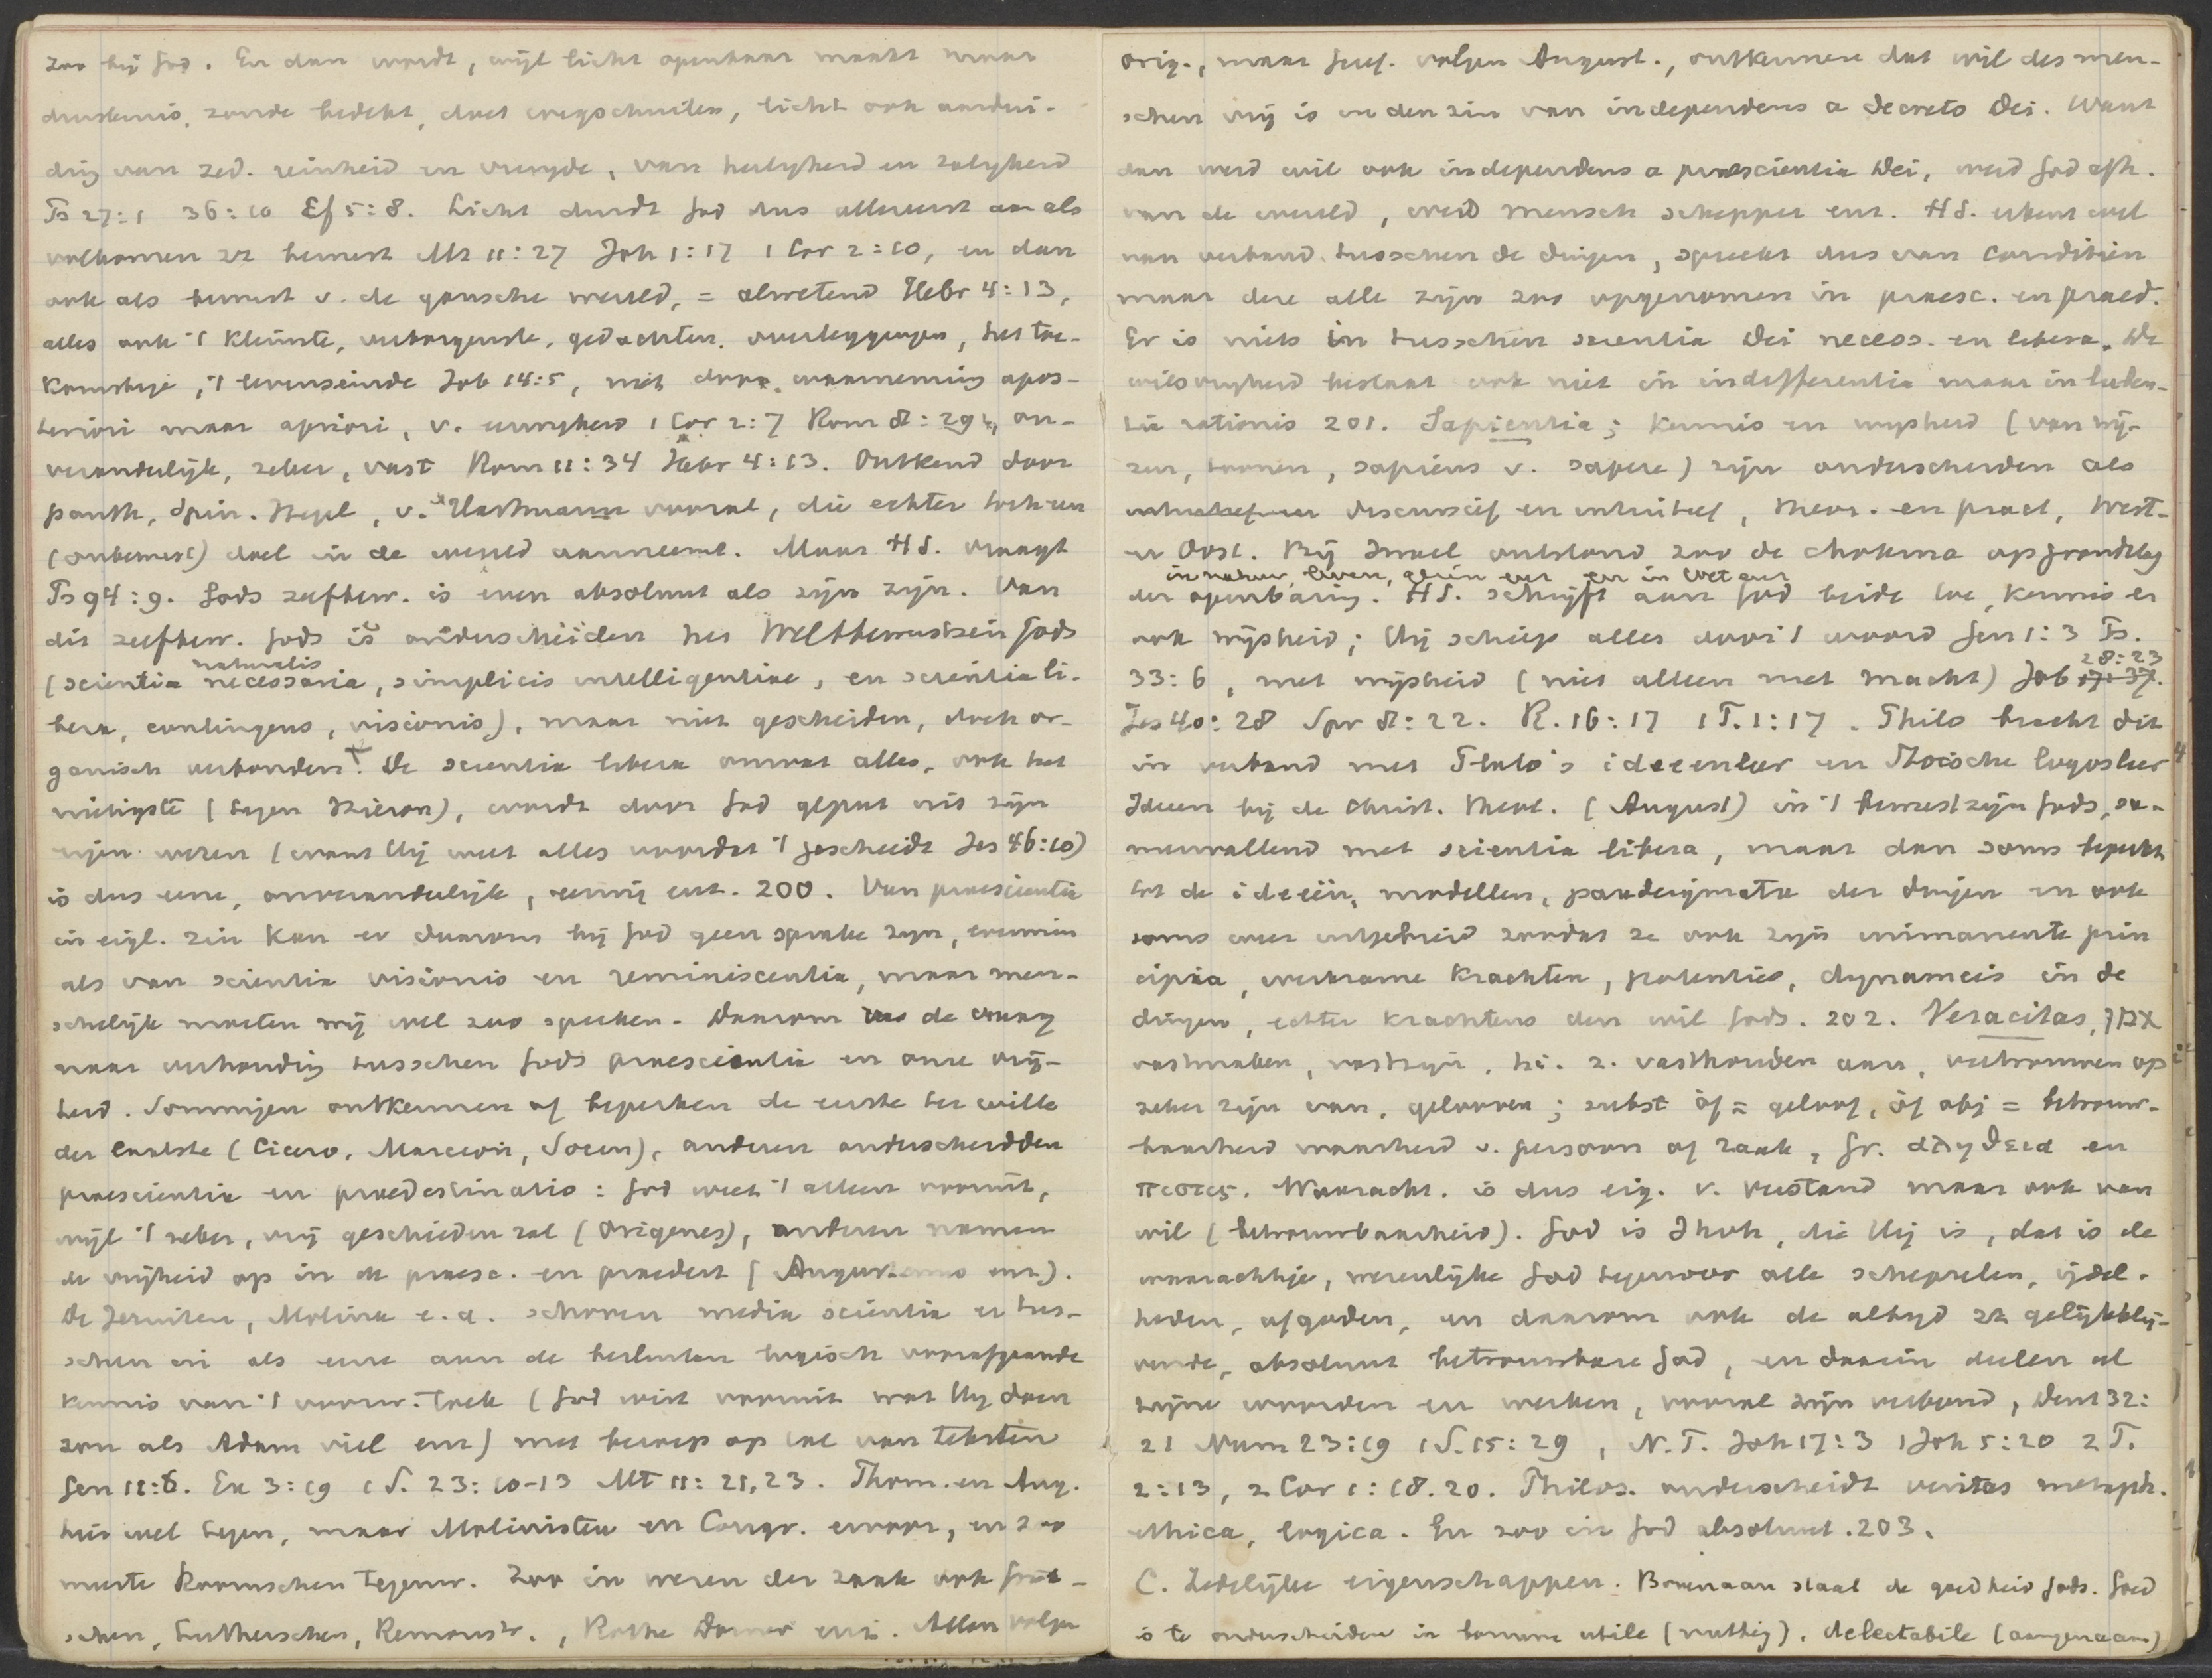 zoo bij God. En dan wordt, wijl licht openbaar maakt maar
duisternis, zonde bedekt, doet wegschuilen, licht ook aandui-
ding van zed. reinheid en vreugde, van heiligheid en zaligheid
Ps 27:1 36:10 Ef 5:8. Licht duidt God dus allereerst aan als
volkomen zn bewust Mt 11:27 Joh 1:17 1 Cor 2:10, en dan
ook als bewust v. de gansche wereld, = alwetend Hebr 4:13,
alles ook 't kleinste, verborgenste, gedachten, overleggingen, het toe-
komstige, 't levenseinde Job 14:5, niet door waarneming apos-
teriori maar apriori, v. eeuwigheid 1 Cor 2:7 Rom 8:29, on-
veranderlijk, zeker, vast Rom 11:34 Hebr 4:13. Ontkend door
panth, Spin. Hegel, v. Hartmann vooral, die echter toch een
(onbewust) doel in de wereld aanneemt. Maar H S. vraagt
Ps 94:9. Gods zelfbew. is even absoluut als zijn zijn. Van
dit zelfbew. Gods is onderscheiden het Weltbewustsein Gods
naturalis
(scientia necessaria, simplicis intelligentiae, en scientia li-
bera, contingens, visionis), maar niet gescheiden, doch or-
ganisch verbonden. De scientia libera omvat alles, ook het
nietigste (tegen Hieron), wordt door God geput uit zijn
eigen wezen (want Hij weet alles voordat 't geschiedt Jes 46:10)
is dus eene, onveranderlijk, eeuwig enz. 200. Van praescientia
in eigl. zin kan er daarom bij God geen sprake zijn, evenmin
als van scientia visionis en reminiscentia, maar men-
schelijk moeten wij wel zoo spreken. Daarom de vraag
naar verhouding tusschen Gods praescientia en onze vrij-
heid. Sommigen ontkennen of beperken de eerste ter wille
der laatste (Cicero, Marcion, Socin), anderen onderscheidden
praescientia en praedestinatio: God weet 't alleen vooruit,
wijl 't zeker, vrij geschieden zal (Origenes), anderen namen
de vrijheid op in de praesc. en praedest (Augustinus enz).
De Jezuiten, Molina e.a. schoven media scientia er tus-
schen in als eene aan de besluiten logisch voorafgaande
kennis van 't voorw. toek (God wist vooruit wat Hij doen
zou als Adam viel enz) met beroep op tal van teksten
Gen 11:6. Ex 3:19 1 S. 23:10-13 Mt 11:21,23. Thom. en Aug.
hier wel tegen, maar Molinisten en Congr. ervoor, en zoo
meeste Roomschen tegenw. Zoo in wezen der zaak ook Griek-
schen, Lutherschen, Remonstr., Rothe Dorner enz. Allen volgen
orig., maar Geref. volgen August., ontkennen dat wil des men-
schen vrij is in den zin van independens a decreto Dei. Want
dan werd wil ook independens a praescientia Dei, werd God afh.
van de wereld, werd mensch schepper enz. H S. erkent wel
van verband tusschen de dingen, spreekt dus van condities
maar deze alle zijn zoo opgenomen in praesc. en praed.
Er is niets in tusschen scientia Dei necess. en libera. De
wilsvrijheid bestaat ook niet in indifferentia maar in luben-
tia rationis 201. Sapientia; kennis en wijsheid (van wij-
zen, toonen, sapiens v. sapere) zijn onderscheiden als
discursief en intuitief, theor. en pract, West-
en Oost. Bij Israel ontstond zoo de chokma op grondslag
in natuur, leven, gezin enz en in wet enz
der openbaring. H S. schrijft aan God beide toe, kennis en
ook wijsheid; Hij schiep alles door 't woord Gen 1:3 Ps.
28:23
33:6, met wijsheid (niet alleen met macht) Job 17:37.
Jes 40:28 Spr 8:22. R. 16:17 1 T. 1:17. Philo bracht dit
in verband met Plato's ideeenleer en Stoische logosleer
Ideen bij de Christ. theol. (August) in 't bewustzijn Gods, sa-
menvallend met scientia libera, maar dan soms beperkt
tot de ideën, modellen, paradeigmata der dingen en ook
soms weer uitgebreid zoodat ze ook zijn immanente prin
cipia, werkzame krachten, potenties, dynameis in de
dingen, echter krachtens den wil Gods. 202. Veracitas, אמן
vastmaken, vastzijn, hi. z. vasthouden aan, vertrouwen op
zeker zijn van, gelooven; subst óf = geloof, óf obj = betrouw-
baarheid waarheid v. persoon of zaak, Gr. αληθεια en
πιστις. Waaracht. is dus eig. v. verstand maar ook van
wil (betrouwbaarheid). God is Jhvh, die Hij is, dat is de
waarachtige, werkelijke God tegenover alle schepselen, ijdel-
heden, afgoden, en daarom ook de altijd zn gelijkblij-
vende, absoluut betrouwbare God, en daarin deelen al
zijne woorden en werken, vooral zijn verbond, Deut 32:
21 Num 23:19 1 S. 15:29, N. T. Joh 17:3 1 Joh 5:20 2 T.
2:13, 2 Cor 1:18.20. Philos. onderscheidt veritas metaph.
ethica, logica. En zoo in God absoluut. 203.
C. Zedelijke eigenschappen. Bovenaan staat de goedheid Gods. Goed
is te onderscheiden in bonum utile (nuttig), delectabile (aangenaam)